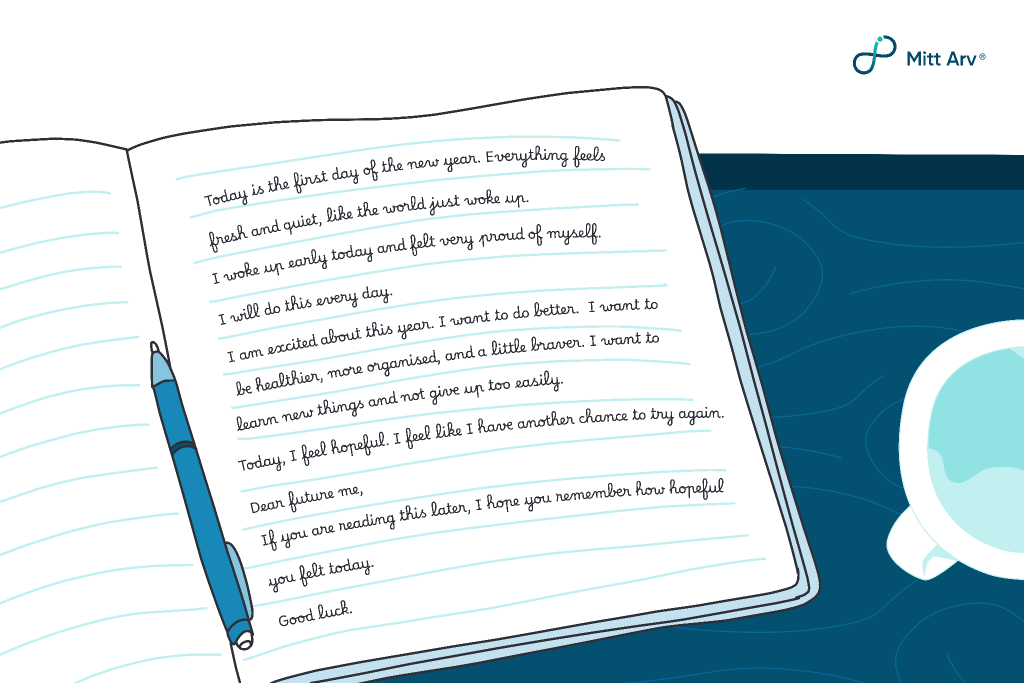 Mitt Arv®
Today is the first day of the new year. Everything feels
fresh and quiet, like the world just woke up.
I woke up early today and felt very proud of myself.
I will do this every day.
I am excited about this year. I want to do better. I want to
be healthier, more organised, and a little braver. I want to
learn new things and not give up too easily.
Today, I feel hopeful. I feel like I have another chance to try again.
Dear future me,
If you are reading this later, I hope you remember how hopeful
you felt today.
Good luck.